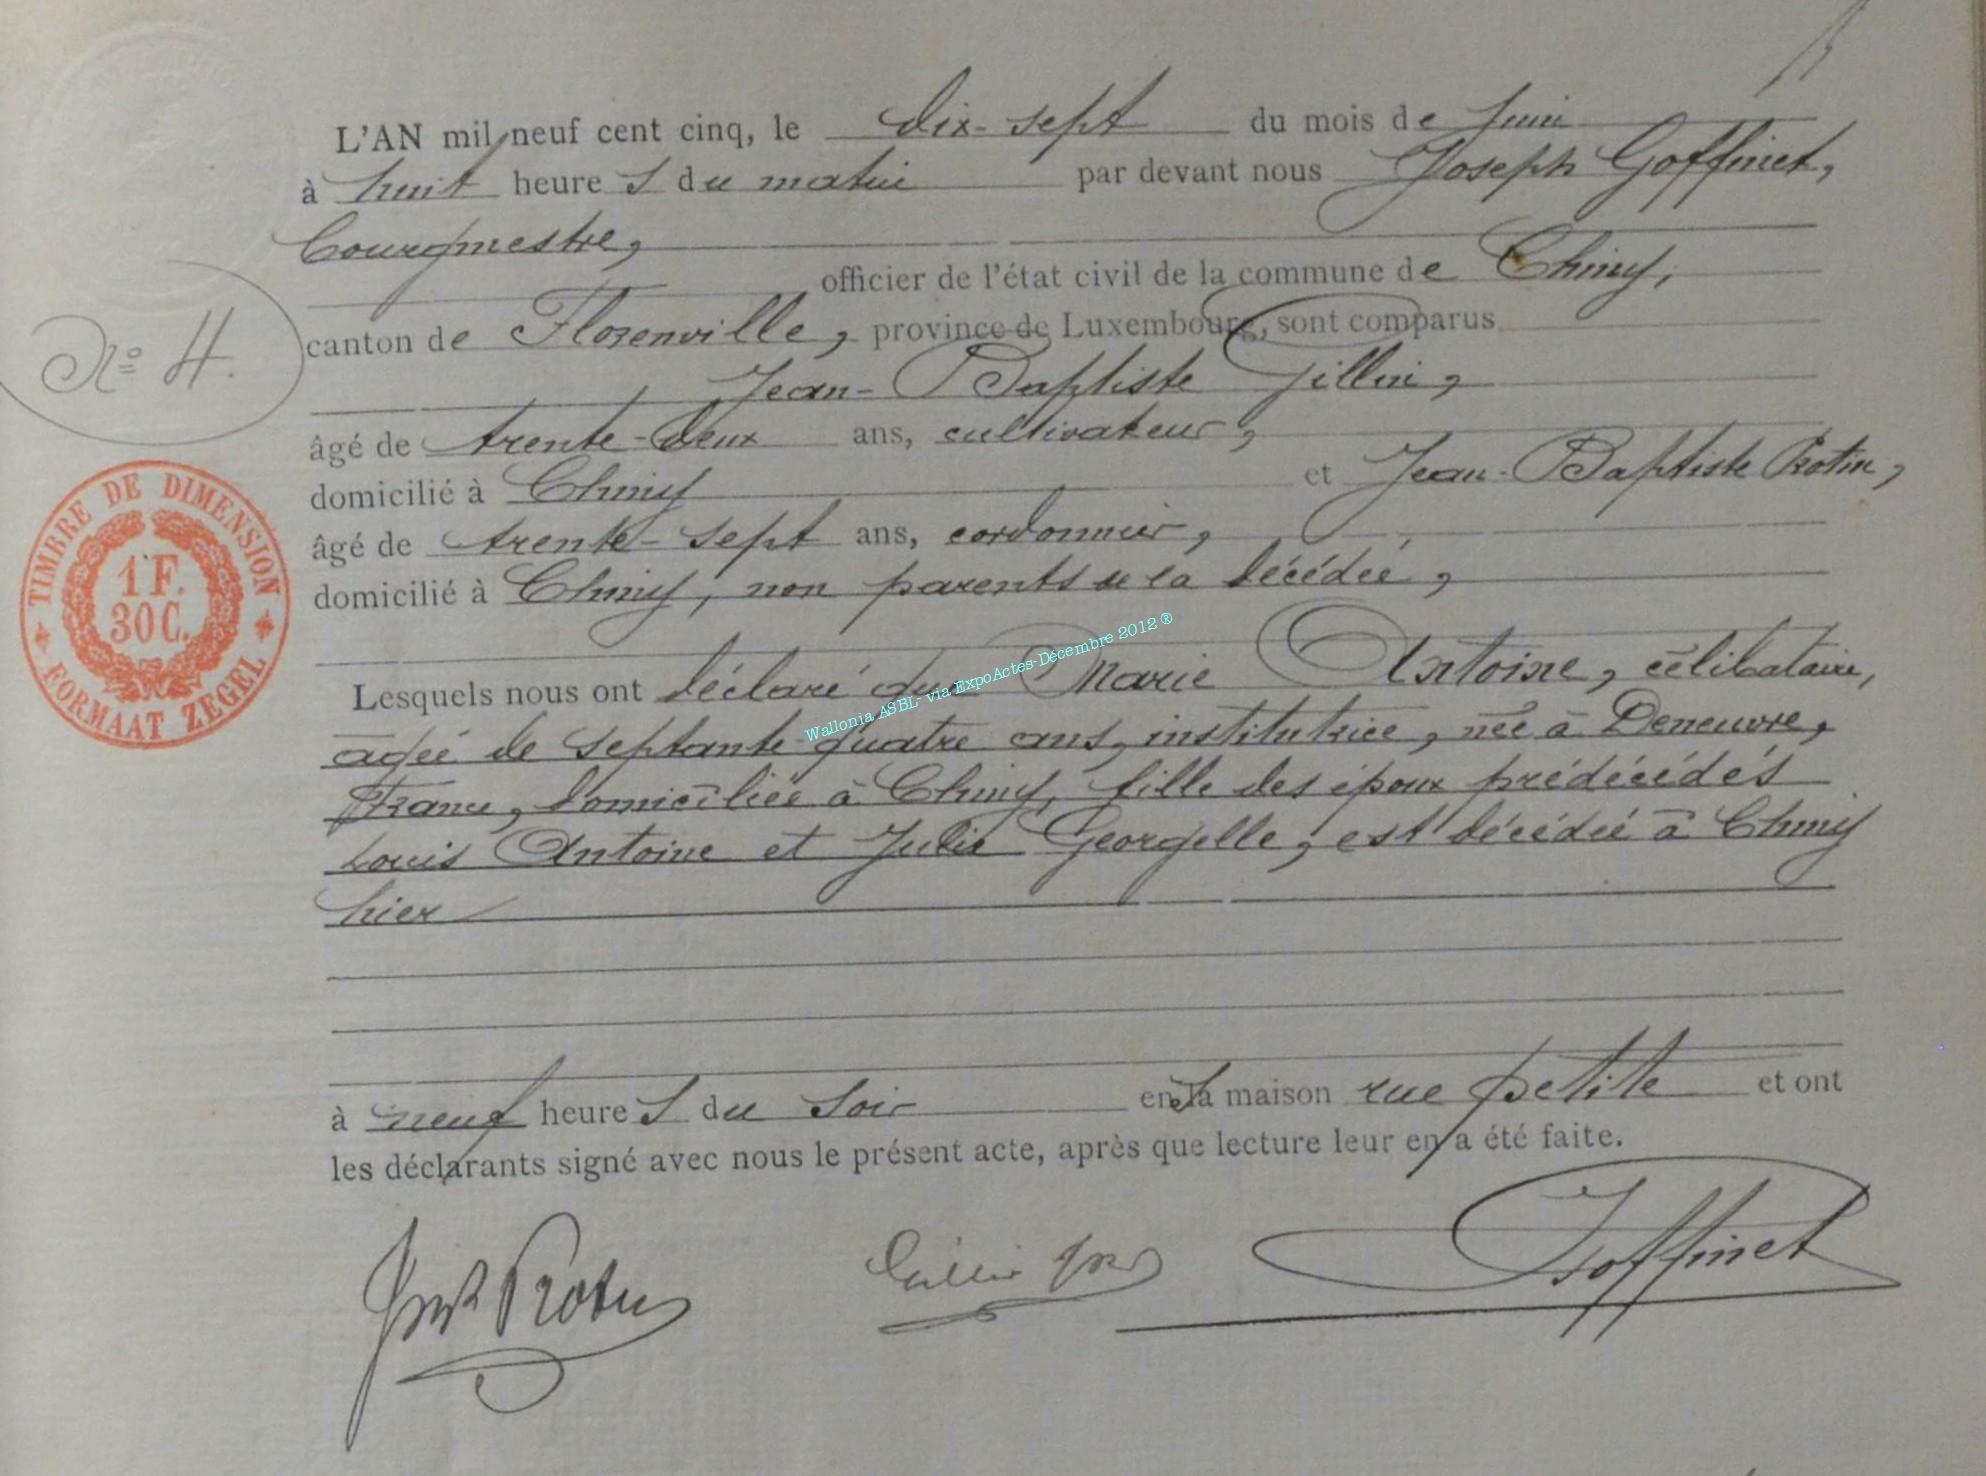 L'AN mil neuf cent cinq, le dix-sept du mois de Juin
à huit heures du matin par devant nous Joseph Goffinet,
bourgmestre,
officier de l'état civil de la commune de Chiny,
canton de Florenville, province de Luxembourg, sont comparus
Nº 4.
Jean-Baptiste Gillin,
âgé de trente-deux ans, cultivateur,
domicilié à Chiny et Jean-Baptiste Rotin,
âgé de trente-sept ans, cordonnier,
domicilié à Chiny, non parents de la décédée,
TIMBRE DE DIMENSION
1 F.
30 C.
FORMAAT ZEGEL
Wallonia ASBL- via ExpoActes-Décembre 2012 ®
Lesquels nous ont déclaré que Marie Antoine, célibataire,
agée de septante-quatre ans, institutrice, née à Deneuvre,
France, domiciliée à Chiny, fille des époux prédécédés
Louis Antoine et Julie Georgelle, est décédée à Chiny
hier
à neuf heures du soir en sa maison rue petite et ont
les déclarants signé avec nous le présent acte, après que lecture leur en a été faite.
Rotin Gillin Goffinet